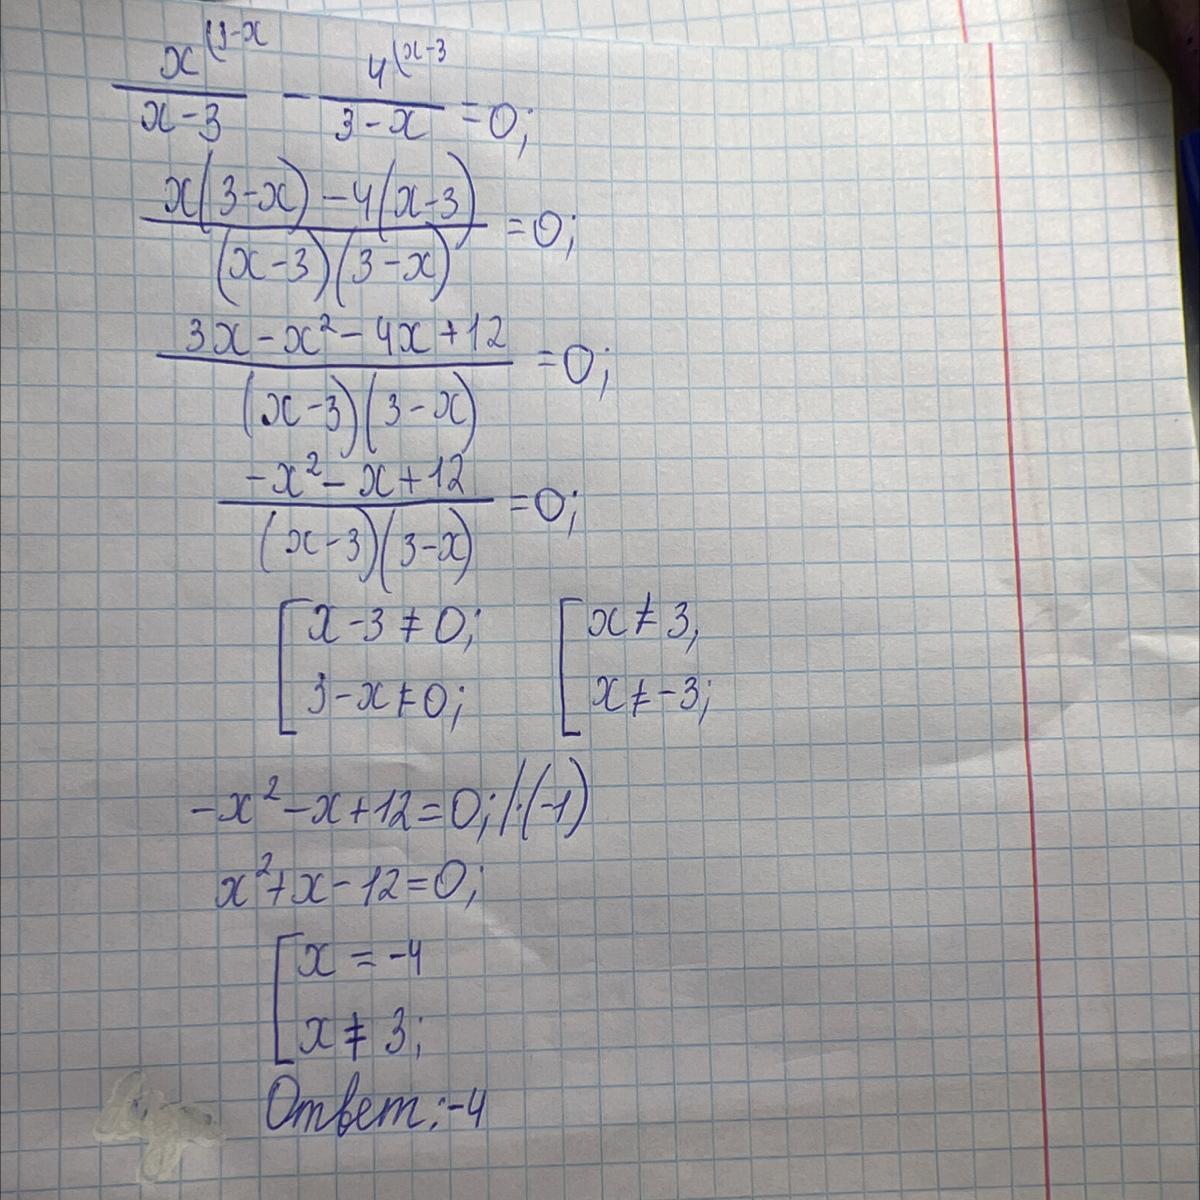 x(3-x / x-3 - 4(x-3 / 3-x = 0;
x(3-x)-4(x-3) / (x-3)(3-x) = 0;
3x-x²-4x+12 / (x-3)(3-x) = 0;
-x²-x+12 / (x-3)(3-x) = 0;
[x-3≠0; [x≠3,
3-x≠0; x≠-3;
-x²-x+12=0; /·(-1)
x²+x-12=0;
[x=-4
x≠3;
Ответ: -4